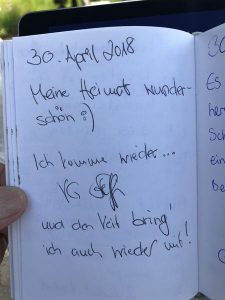 30. April 2018
Meine Heimat wunder-
schön :)
Ich komme wieder...
VG
und den Veit bring'
ich auch wieder mit!
30
Es
her
Sch
ein
De